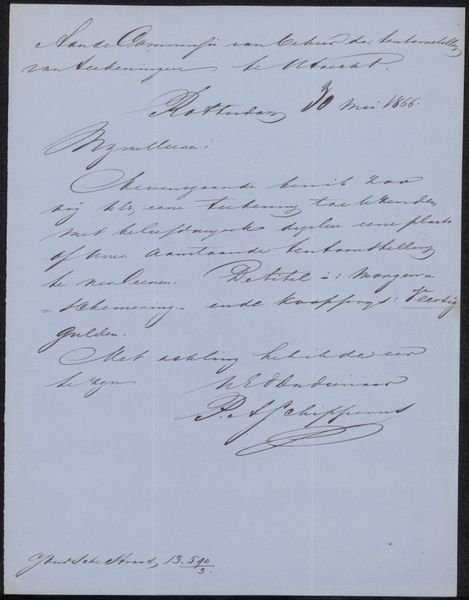 Aan de Commissie van beheer der tentoonstelling
van teekeningen te Utrecht.
Rotterdam 30 Mei 1866.
Mijneheeren!
Nevensgaande ben ik zoo
vrij U een teekening toe te zenden
met beleefd verzoek dezelve eene plaats
op Uwe aanstaande tentoonstelling
te verleenen. De titel is: Morgen-
schemering. en de koopprijs: Veertig
gulden.
Met achting heb ik de eer
te zijn
UEd Dienaar
P. A Schipperus
13. 590
3.